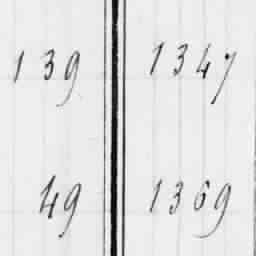 139 1347
49 1369